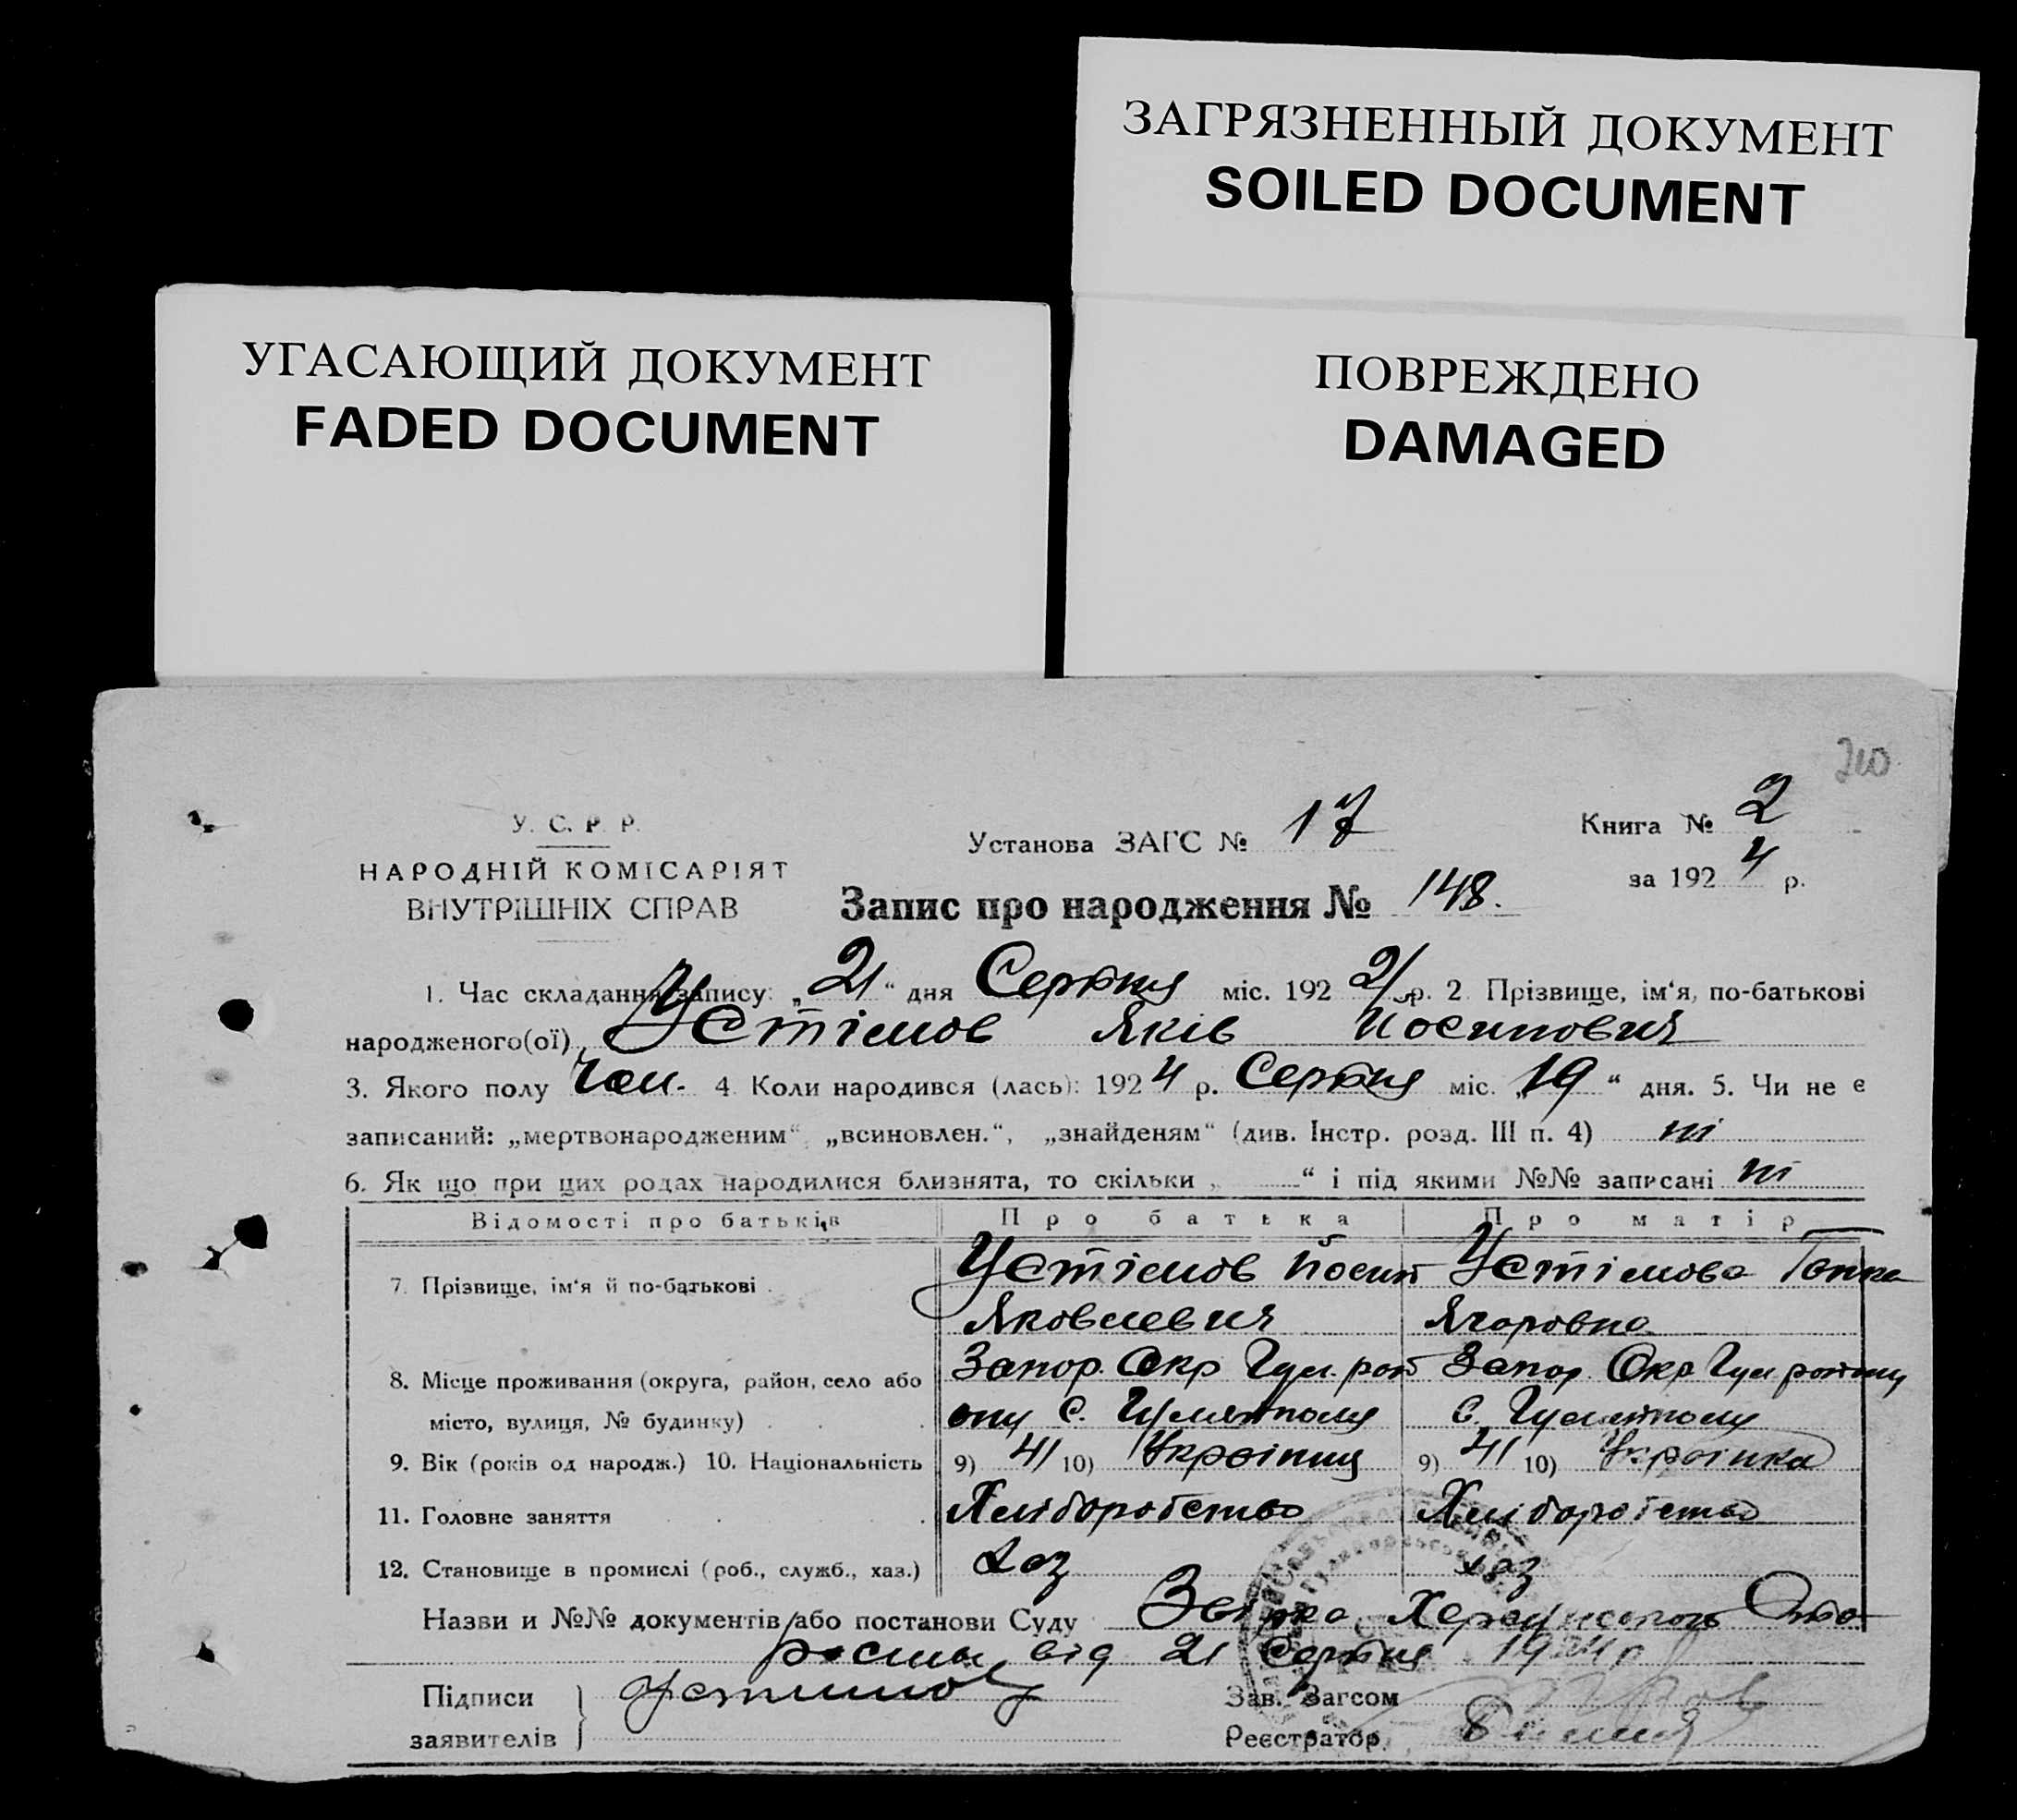 ЗАГРЯЗНЕННЫЙ ДОКУМЕНТ
SOILED DOCUMENT
УГАСАЮЩИЙ ДОКУМЕНТ
FADED DOCUMENT
ПОВРЕЖДЕНО
DAMAGED
210
У. С. Р. Р.
НАРОДНІЙ КОМІСАРІЯТ
ВНУТРІШНІХ СПРАВ
Установа ЗАГС № 17
Книга № 2
за 1924 р.
Запис про народження № 148.
1. Час складання запису: „21“ дня Серпня міс. 192 р. 2 Прізвище, ім‘я, по-батькові
народженого(ої) Устімов Яків Йосипович
3. Якого полу Чол. 4 Коли народився (лась): 1924 р. Серпня міс. „19“ дня. 5. Чи не є
записаний: „мертвонародженим“, „всиновлен.“, „знайденям“ (див. Інстр. розд. III п. 4) ні
6. Як що при цих родах народилися близнята, то скільки „ “ і під якими №№ записані ні
Відомості про батьків Про батька Про матір
7. Прізвище, ім‘я й по-батькові . Устімов Йосип Устімова Ганна
Яковлевич Ягоровна
8. Місце проживання (округа, район, село або Запор. Окр Гул. рай Запор. Окр Гул
місто, вулиця, № будинку) . . . ону С. Гуляйполу С. Гуляйполу
9. Вік (років од народж.) 10. Національність 9) 41 10) Українец 9) 41 10) Українка
11. Головне заняття . . . Хліборобство Хліборобство
12. Становище в промислі (роб., служб., хаз.) Хаз хаз
Назви и №№ документів або постанови Суду
від 21 Серпня 1924 р
Підписи
заявителів } Устимов
Зав. Загсом
Реєстратор